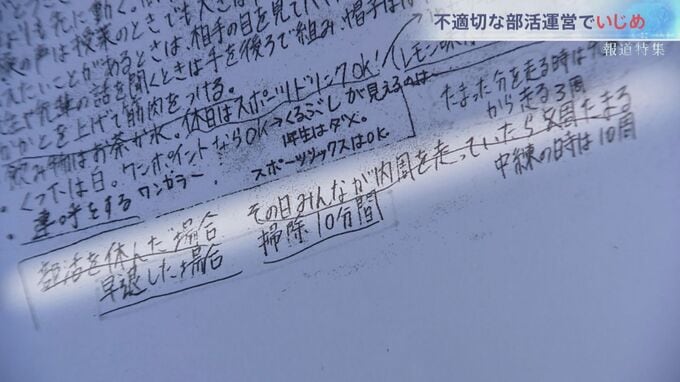 不適切な部活運営でいじめ
報道特集
の声は授業のときでも大き
えたいことがあるときは相手の目を見て
先輩の話を聞くときは手を後ろで組み、帽子は
かかとを上げて筋肉をつける。
飲み物はお茶か水。休日はスポーツドリンクOK!
くつ下は白。ワンポイントならOK→くるぶしが見えるのは
生はダメ。
・連呼をする ワンカラー。
スポーツソックスはOK。
たまった分を走る時は
から走る3周
部活を休んだ場合
その日みんなが内周を走っていたら8周たまる
中練の日時は10周
早退した場合
掃除10分間